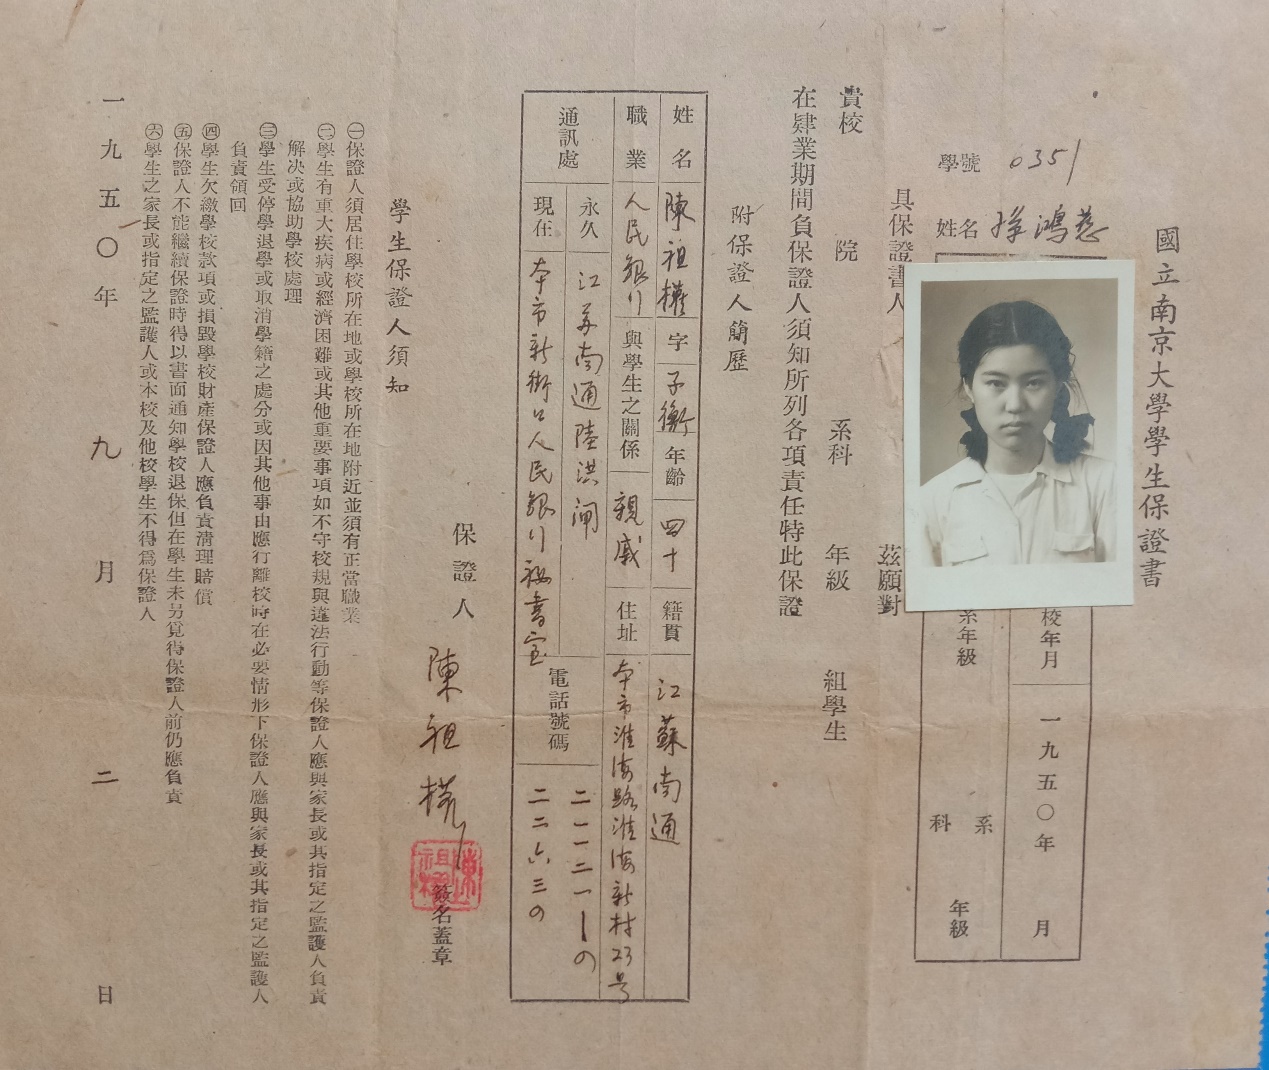 國立南京大學學生保證書
學號 0351
姓名 鴻慈
校年月 一九五〇年 月
系年級 系科 年級
具保證書人 茲願對
貴校 院 系科 年級 組學生
在肄業期間負保證人須知所列各項責任特此保證
附保證人簡歷
姓名 陳祖 字 子衡 年齡 四十 籍貫 江蘇南通
職業 人民銀行 與學生之關係 親戚 住址 本市淮海路淮海新村23号
通訊處 永久 江苏南通陸洪闸
現在 本市新街口人民銀行秘書室
電話號碼 二一一二一
二二六三〇
保證人 陳祖 簽名蓋章
學生保證人須知
㊀保證人須居住學校所在地或學校所在地附近並須有正當職業
㊁學生有重大疾病或經濟困難或其他重要事項如不守校規與違法行動等保證人應與家長或其指定之監護人負責
解決或協助學校處理
㊂學生受停學退學或取消學籍之處分或因其他事由應行離校時在必要情形下保證人應與家長或其指定之監護人
負責領回
㊃學生欠繳學校款項或損毀學校財產保證人應負責清理賠償
㊄保證人不能繼續保證時得以書面通知學校退保但在學生未另覓得保證人前仍應負責
㊅學生之家長或指定之監護人或本校及他校學生不得爲保證人
一九五〇年 九 月 二 日